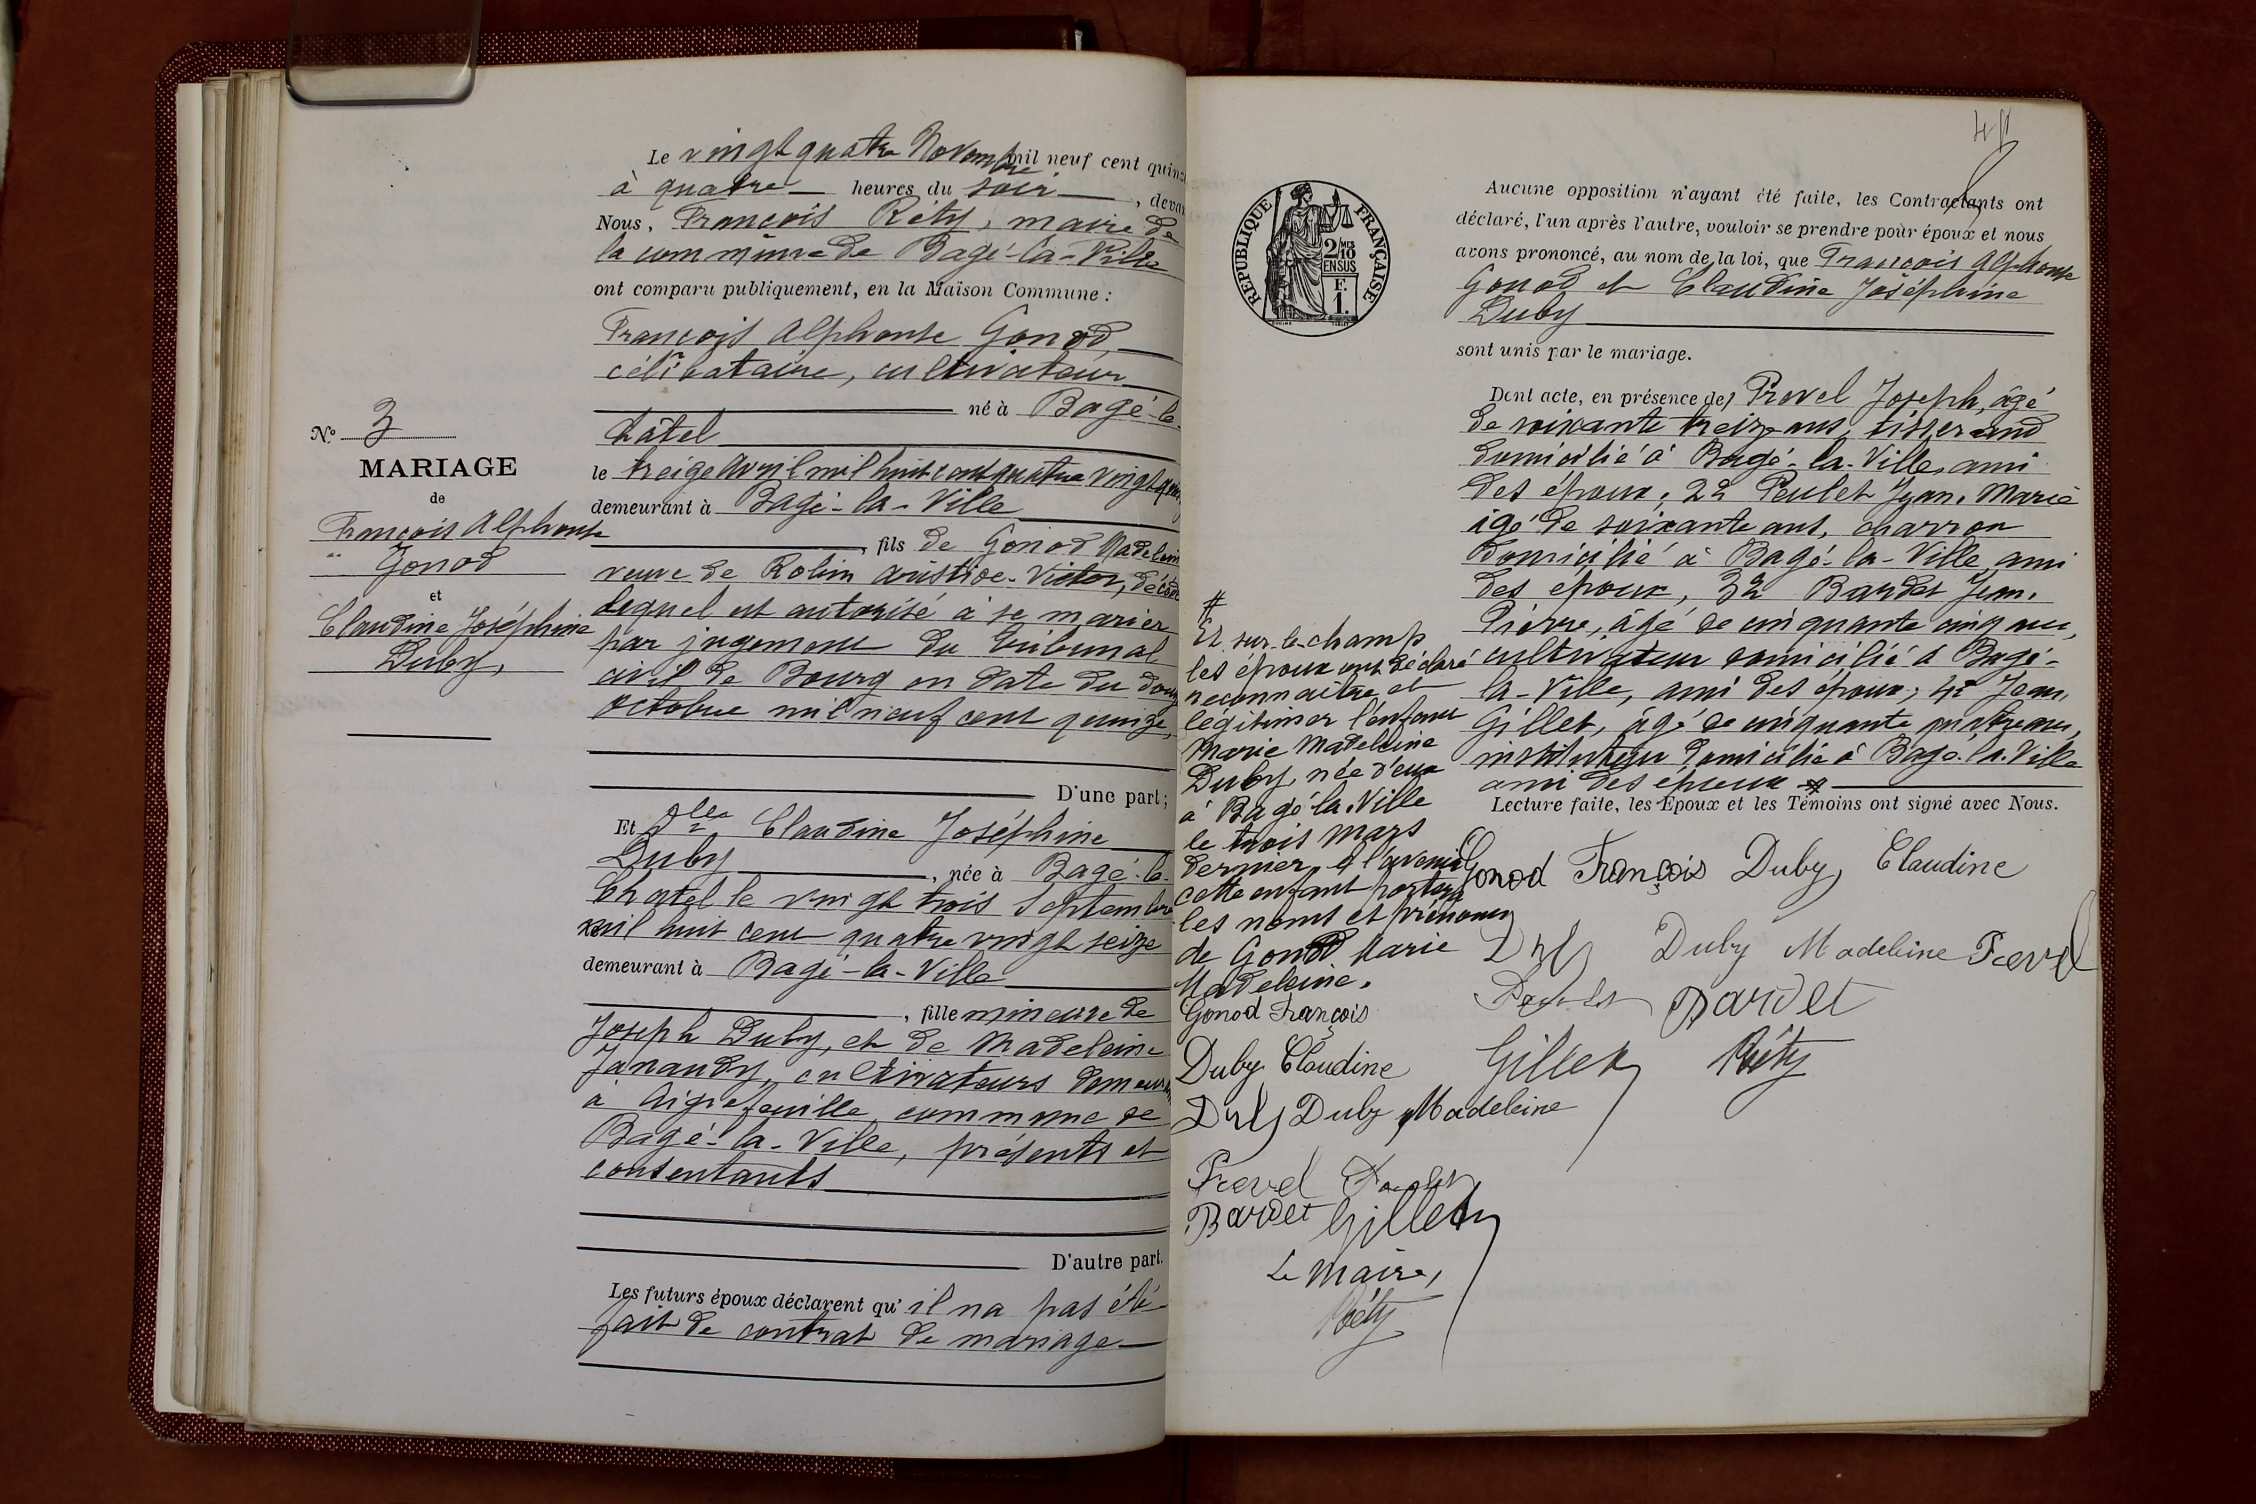 N.º 3
MARIAGE
de
François Alphonse
Gonod
et
Claudine Joséphine
Duby,
Le vingt quatre Novembre mil neuf cent quinze
à quatre heures du soir, devan
Nous, François Réty, maire de
la commune de Bagé-la-Ville
ont comparu publiquement, en la Maison Commune :
François Alphonse Gonod
célibataire, cultivateur
né à Bagé-le-
Châtel
le treize avril mil huit cent quatre vingt
demeurant à Bagé-la-Ville
, fils de Gonod Madeleine
veuve de Robin Aristide-Victor, décédé
lequel est autorisé à se marier
par jugement du tribunal
civil de Bourg en date du douze
octobre mil neuf cent quinze,
D'une part ;
Et Dlle Claudine Joséphine
Duby, née à Bagé-le-
Châtel le vingt trois Septembre
mil huit cent quatre vingt seize
demeurant à Bagé-la-Ville
, fille mineure de
Joseph Duby, et de Madeleine
Janaudy, cultivateurs demeurant
à Aigrefeuille commune de
Bagé-la-Ville, présents et
consentants
D'autre part.
Les futurs époux déclarent qu'il n'a pas été
fait de contrat de mariage
RÉPUBLIQUE FRANÇAISE
2/10
EN SUS
F.
1.
Aucune opposition n'ayant été faite, les Contractants ont
déclaré, l'un après l'autre, vouloir se prendre pour époux et nous
avons prononcé, au nom de la loi, que François Alphonse
Gonod et Claudine Joséphine
Duby
sont unis par le mariage.
Dont acte, en présence de 1 Prevel Joseph, âgé
de soixante treize ans, tisserand
domicilié à Bagé-la-Ville, ami
des époux, 2º Peulet Jean-Marie
âgé de soixante ans, charron
domicilié à Bagé-la-Ville ami
des époux, 3º Bardet Jean-
Pierre, âgé de cinquante cinq ans,
cultivateur domicilié à Bagé-
la-Ville, ami des époux, 4º Jean
Gillet, âgé de cinquante quatre ans,
instituteur domicilié à Bagé-la-Ville
ami des époux #
Lecture faite, les Epoux et les Témoins ont signé avec Nous.
Gonod François Duby Claudine
Duby Duby Madeleine Prevel
Peulet Bardet
Gillet Réty
#
Et sur-le-champ
les époux ont déclaré
reconnaître et
légitimer l'enfant
Marie Madeleine
Duby née d'eux
à Bagé-la-Ville
le trois mars
dernier, à l'avenir
cette enfant portera
les noms et prénoms
de Gonod Marie
Madeleine.
Gonod François
Duby Claudine
Duby Duby Madeleine
Prevel Peulet
Bardet Gillet
Le Maire,
Réty